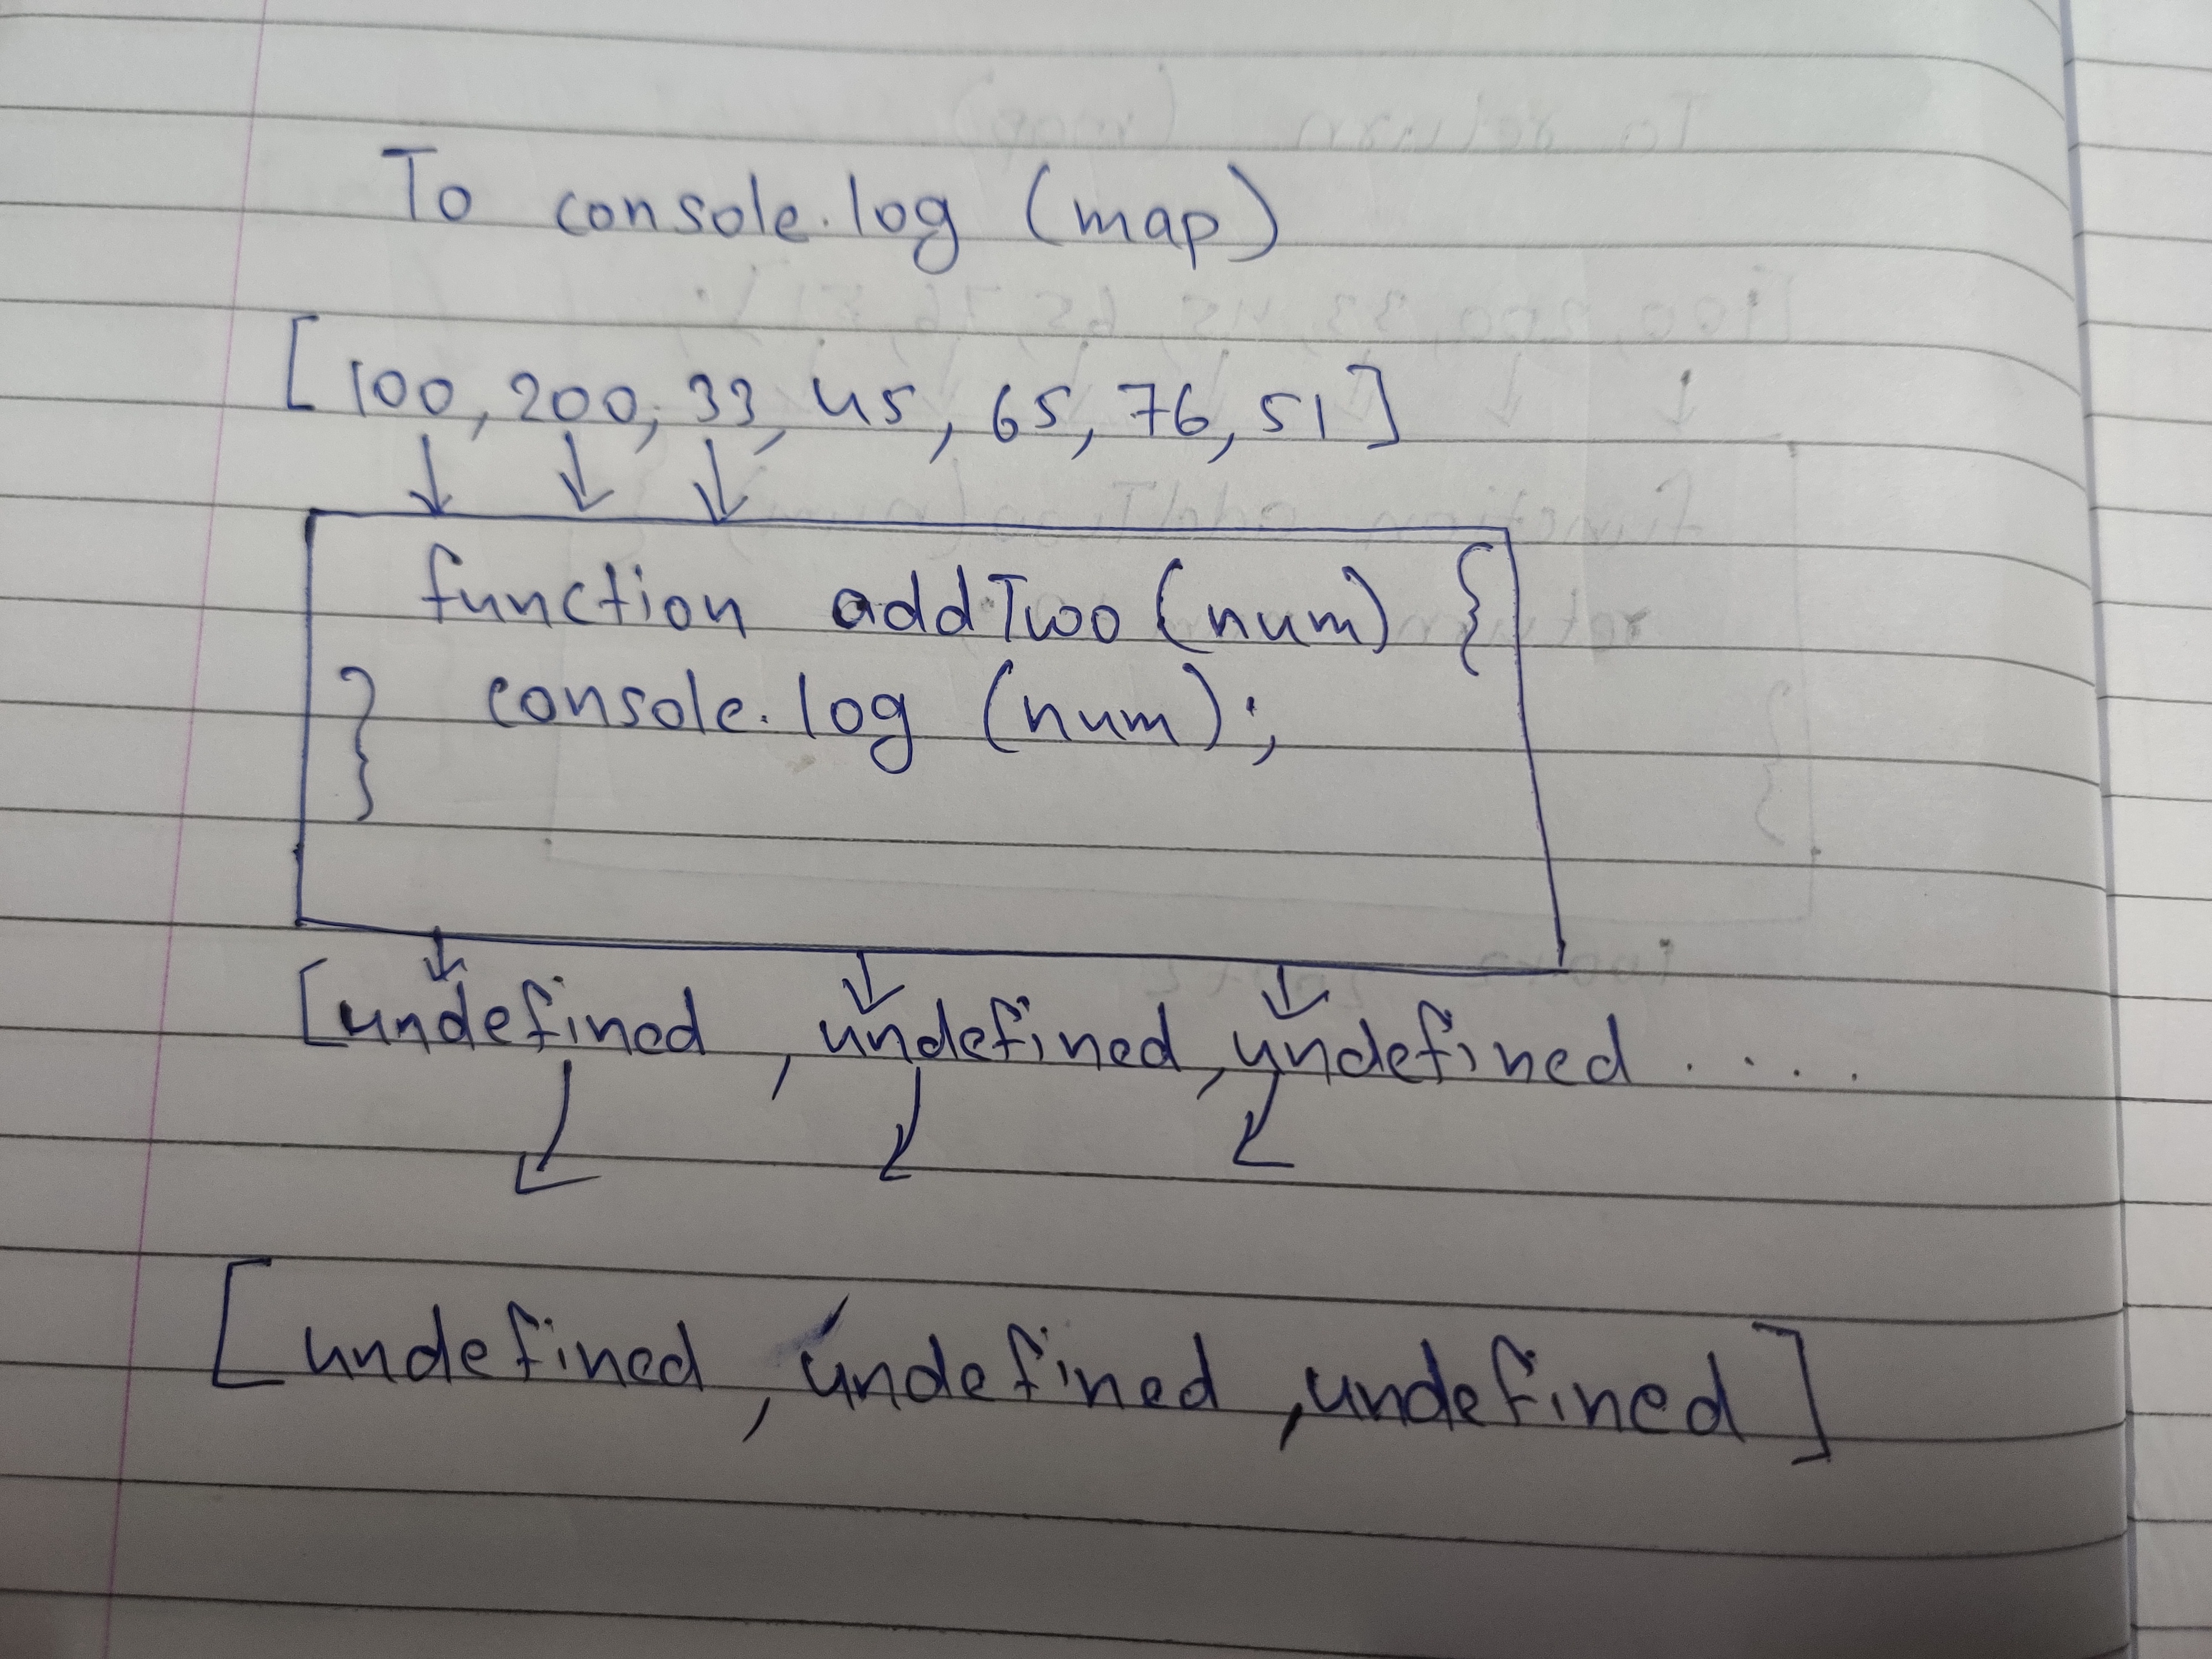 To console.log (map)
[100, 200, 33, 45, 65, 76, 51]
function addTwo (num) {
console.log (num);
}
[undefined, undefined, undefined . . . .
[undefined, undefined, undefined]